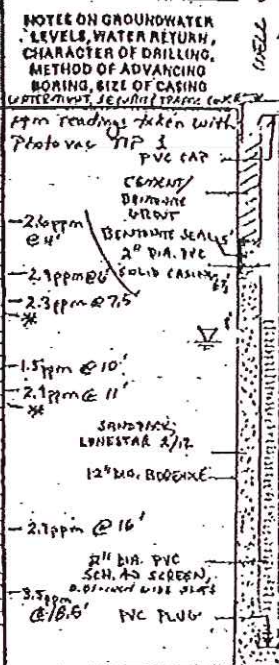 NOTES ON GROUNDWATER
LEVELS, WATER RETURN,
CHARACTER OF DRILLING,
METHOD OF ADVANCING
BORING, SIZE OF CASING
WELL
ppm readings taken with
Photovac TIP 1
PVC CAP
CEMENT/
BENTONITE
GROUT
2.6ppm
@ 4'
BENTONITE SEAL 5'
2" DIA. PVC
SOLID CASING
2.9ppm @ 6'
2.3ppm @ 7.5'
*
8'
1.5ppm @ 10'
2.9ppm @ 11'
*
SANDPACK
LONESTAR 2/12
12" DIA. BOREHOLE
2.9ppm @ 16'
2" DIA. PVC
SCH. 40 SCREEN,
3.5ppm
@ 18.5'
PVC PLUG